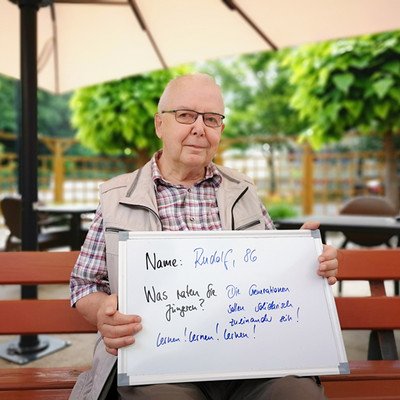 Name: Rudolf, 86
Was raten Sie Die Generationen
Jüngeren? sollen solidarisch
zueinander sein!
Lernen! Lernen! Lernen!